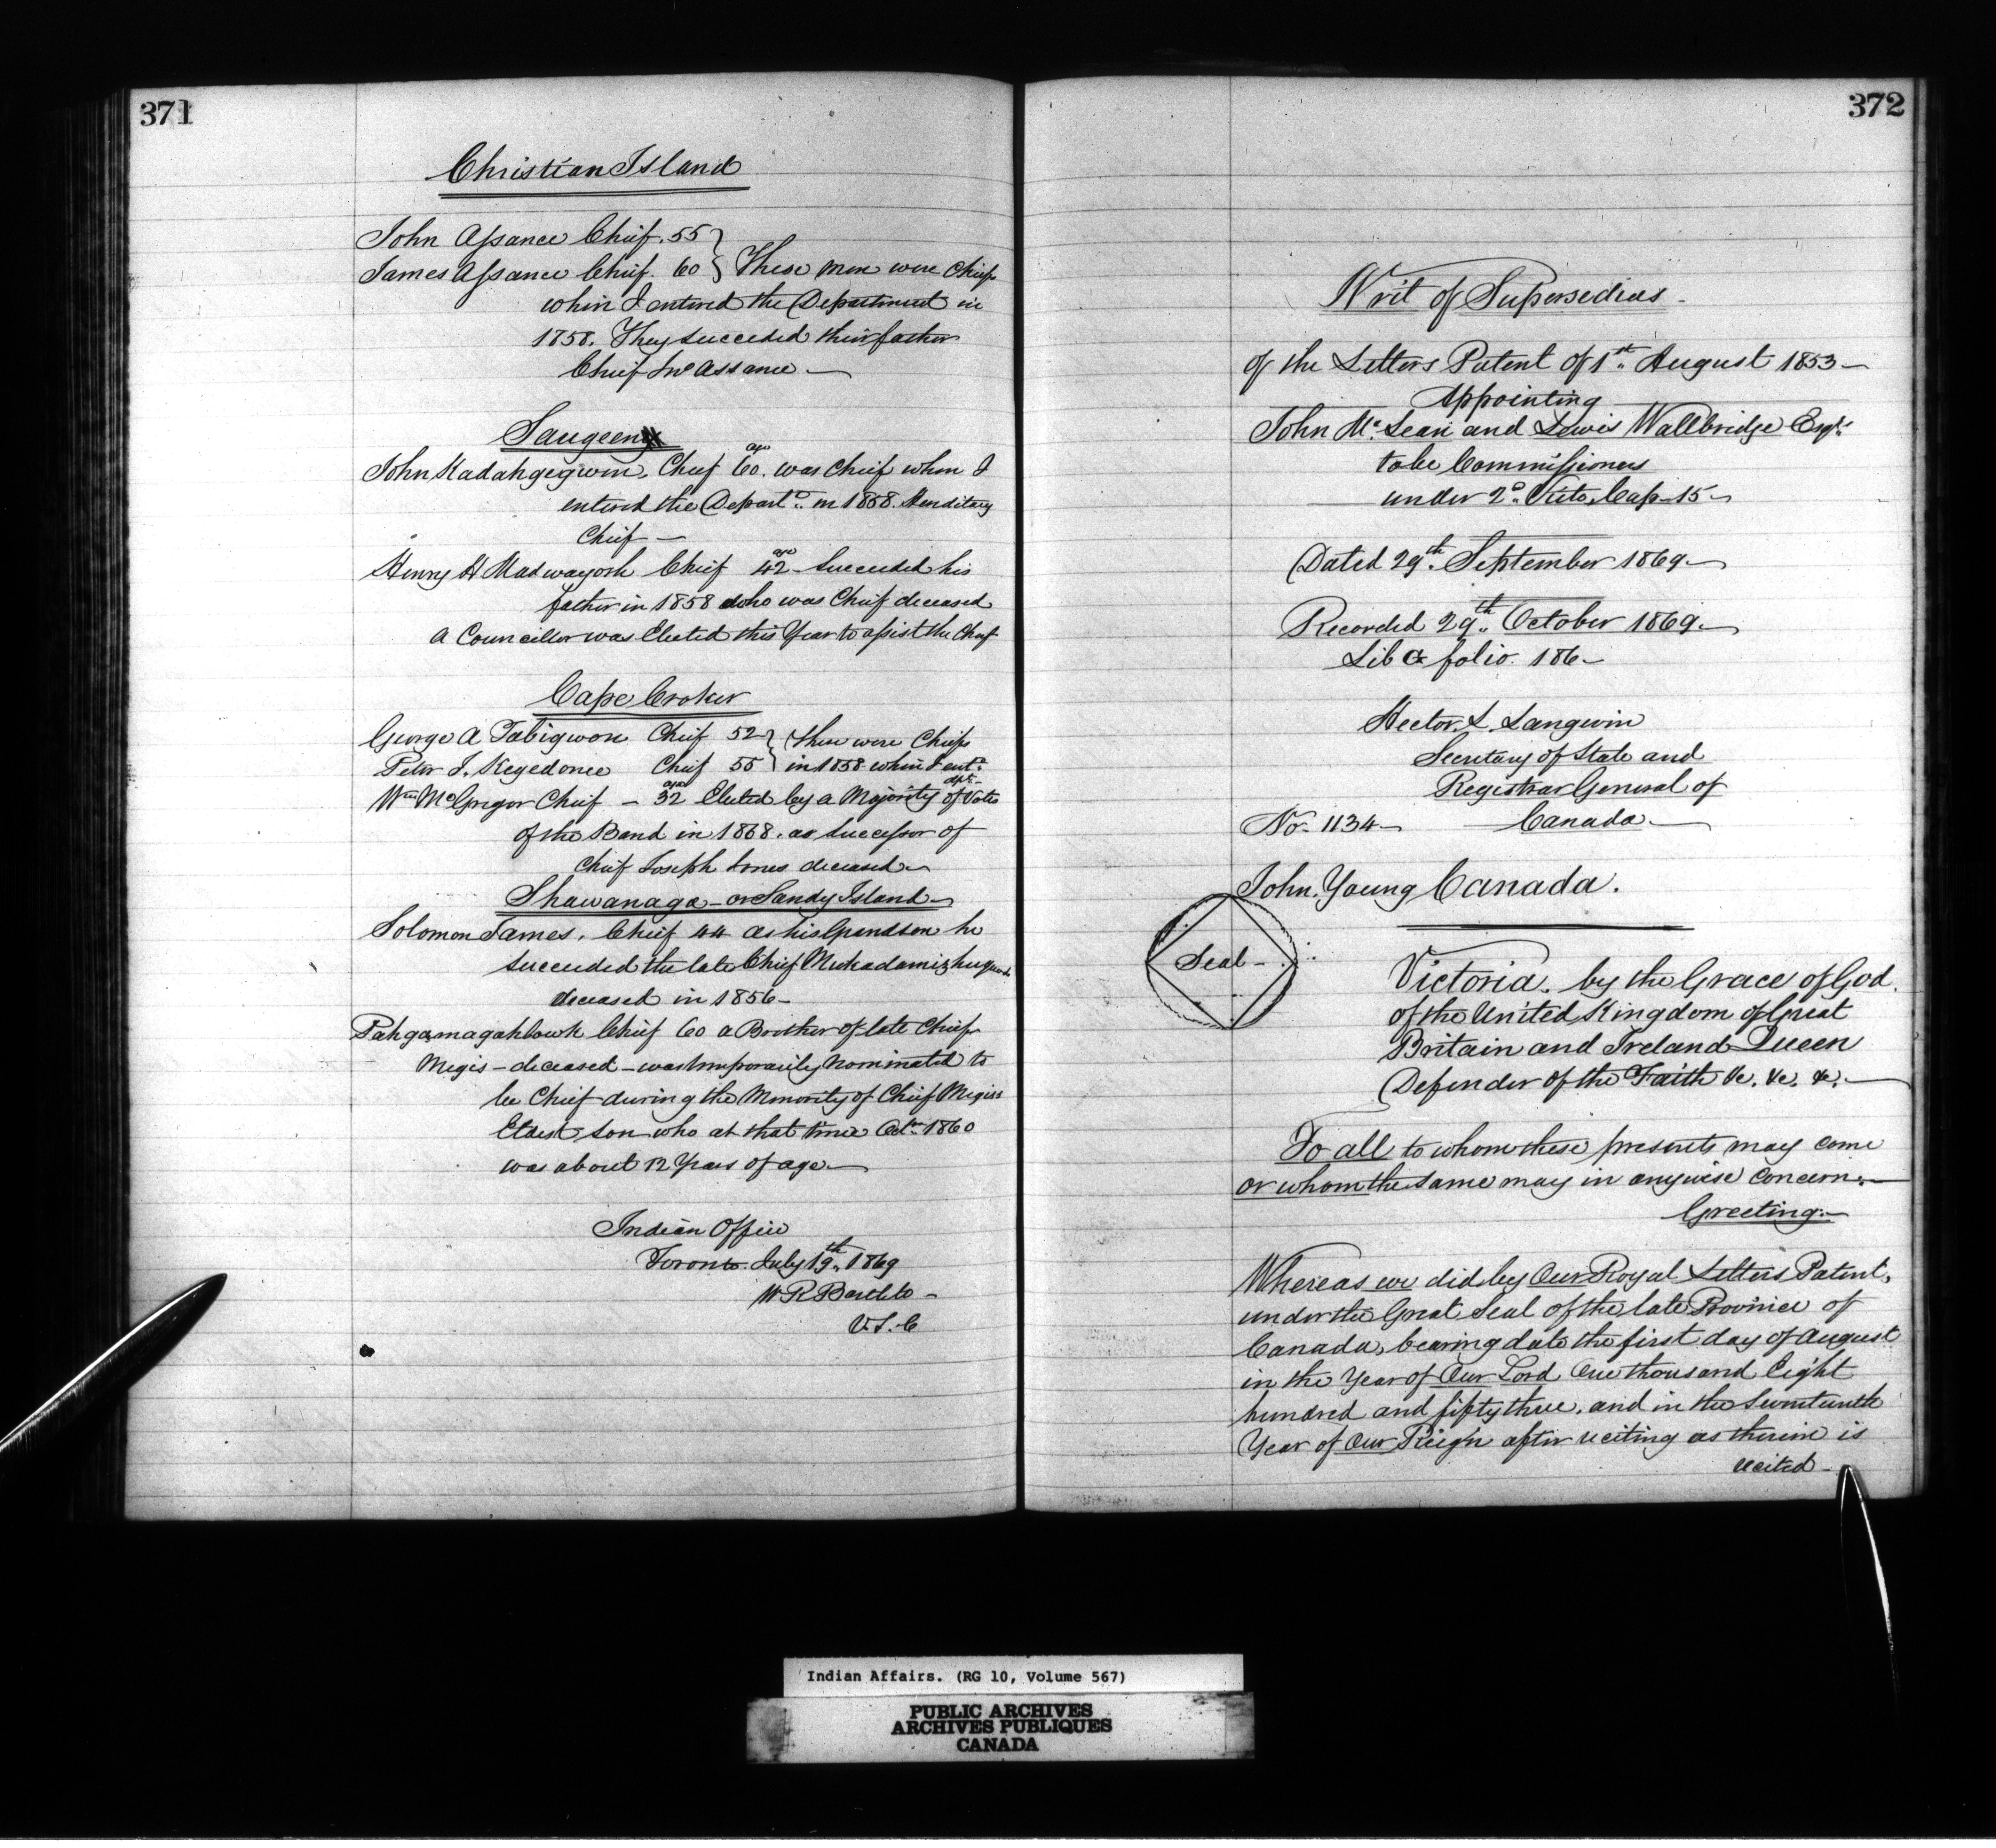 371
Christian Island
John Assance Chief. 55
James Assance Chief. 60 } These men were Chiefs
when I entered the Department in
1858. They succeeded their father
Chief Jno Assance —
Saugeen
John Kadahgegwon, Chief age 60. was Chief when I
entered the Departt. in 1858. Hereditary
Chief —
Henry H Madwayosh Chief age 42 - Succeeded his
father in 1858 who was Chief deceased
a Councillor was Elected this Year to assist the Chief
Cape Croker
George A Tabigwon Chief 52 } These were Chiefs
Peter J. Kegedonce Chief 55 } in 1858 when I entd. dpt. -
Wm McGregor Chief - age 32 Elected by a Majority of Votes
of the Band in 1868. as Successor of
Chief Joseph Jones deceased —
Shawanaga - or Sandy Island -
Solomon James. Chief 44 as his Grandson he
succeeded the late Chief
deceased in 1856 -
Pahgamagahbowh Chief 60 a Brother of late Chief
Megis - deceased - was temporarily nominated to
be Chief during the Minority of Chief Megiss
Eldest son who at that time Octr. 1860
was about 12 Years of age —
Indian Office
Toronto July 19th. 1869
W R Bartlett -
V.S.C
372
Writ of Supersedeas -
of the Letters Patent of 1st. August 1853 -
Appointing
John McLean and Lewis Wallbridge Esqrs.
to be Commissioners
under 2o. Victo, Cap - 15 -
Dated 29th. September 1869 -
Recorded 29th. October 1869. -
Lib G folio. 186 -
Hector. L. Langevin
Secretary of State and
Registrar General of
No. 1134 - Canada. -
John. Young Canada.
Seal -
Victoria. by the Grace of God.
of the United Kingdom of Great
Britain and Ireland Queen
Defender of the Faith &c. &c. &c. —
To all to whom these presents may come
or whom the same may in anywise concern: —
Greeting: -
Whereas we did by Our Royal Letters Patent,
under the Great Seal of the late Province of
Canada, bearing date the first day of August
in the Year of Our Lord One thousand Eight
hundred and fifty three, and in the Seventeenth
Year of Our Reign after reciting as therein is
recited -
Indian Affairs. (RG 10, Volume 567)
PUBLIC ARCHIVES
ARCHIVES PUBLIQUES
CANADA